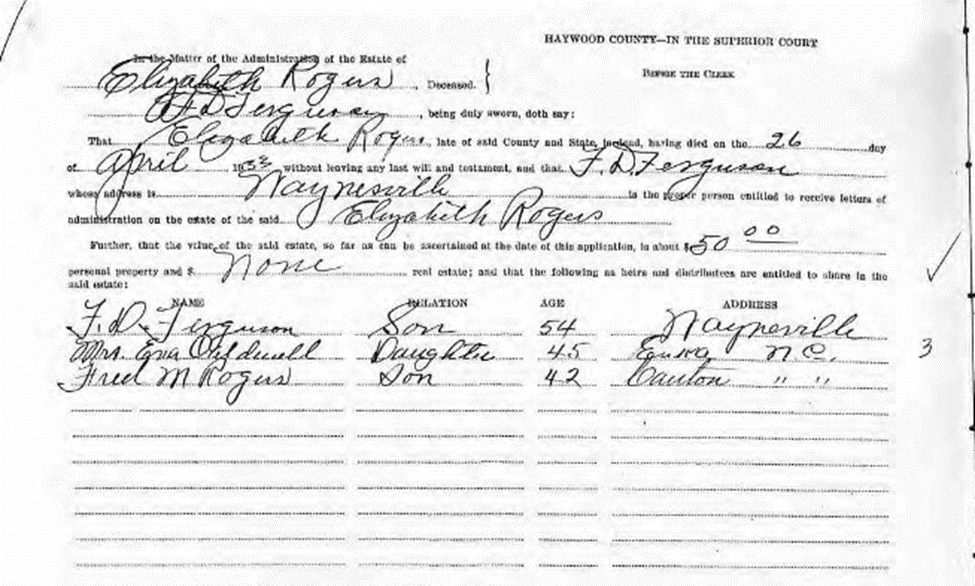 HAYWOOD COUNTY—IN THE SUPERIOR COURT
In the Matter of the Administration of the Estate of
BEFORE THE CLERK
Elizabeth Rogers, Deceased. }
F. D. Ferguson, being duly sworn, doth say:
That Elizabeth Rogers, late of said County and State, is dead, having died on the 26 day
of April 1933 without leaving any last will and testament, and that F. D. Ferguson
whose address is Waynesville is the proper person entitled to receive letters of
administration on the estate of the said Elizabeth Rogers
Further, that the value of the said estate, so far as can be ascertained at the date of this application, is about $50 00
personal property and $ None real estate; and that the following as heirs and distributees are entitled to share in the
said estate:
NAME RELATION AGE ADDRESS
F. D. Ferguson Son 54 Waynesville
Mrs. Eva Daughter 45 N C. 3
Fred M Rogers Son 42 Canton " "